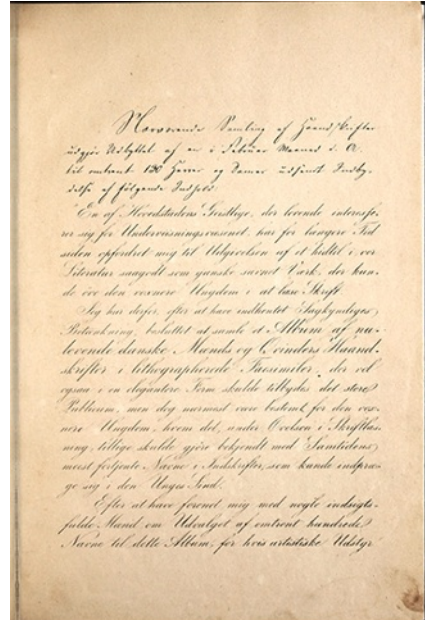 Nærværende Samling af Haandskrifter
udgjør Udbyttet af en i Februar Maaned d. A.
til omtrent 120 Herrer og Damer udsendt Indby-
delse af følgende Indhold:
"En af Hovedstadens Geistlige, der levende interesse-
rer sig for Underviisningsvæsenet, har for længere Tid
siden opfordret mig til Udgivelsen af et hidtil i vor
Literatur saagodt som ganske savnet Værk, der kun-
de øve den voxnere Ungdom i at læse Skrift.
Jeg har derfor, efter at have indhentet Sagkyndiges
Betænkning, besluttet at samle et Album af nu-
levende danske Mænds og Qvinders Haand-
skrifter i lithographerede Facsimiler, der vel
ogsaa i en elegantere Form skulde tilbydes det store
Publicum, men dog nærmest være bestemt for den vox-
nere Ungdom, hvem det, under Øvelsen i Skriftlæs-
ning, tillige skulde gjøre bekjendt med Samtidens
meest fortjente Navne i Indskrifter, som kunde indpræ-
ge sig i den Unges Sind.
Efter at have forenet mig med nogle indsigts-
fulde Mænd om Udvalget af omtrent hundrede
Navne til dette Album, for hvis artistiske Udstyr